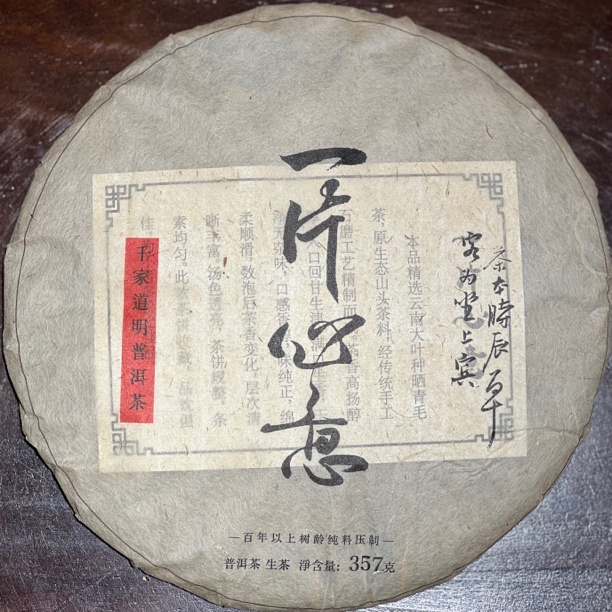 一片心意
時辰
客为 上宾
本品精选云南大叶种晒青毛
茶，原生态山头茶料，经传统手工
石磨工艺精制而 茶香高扬醇
入口回甘生津 满
无杂味，口感 味纯正，绵
柔顺滑，数泡后茶香变化，层次清
晰丰富，汤色透亮，茶饼规整，条
索均匀。此 收藏，品饮俱
佳
千家道明普洱茶
—百年以上树龄纯料压制—
普洱茶 生茶 淨含量：357克